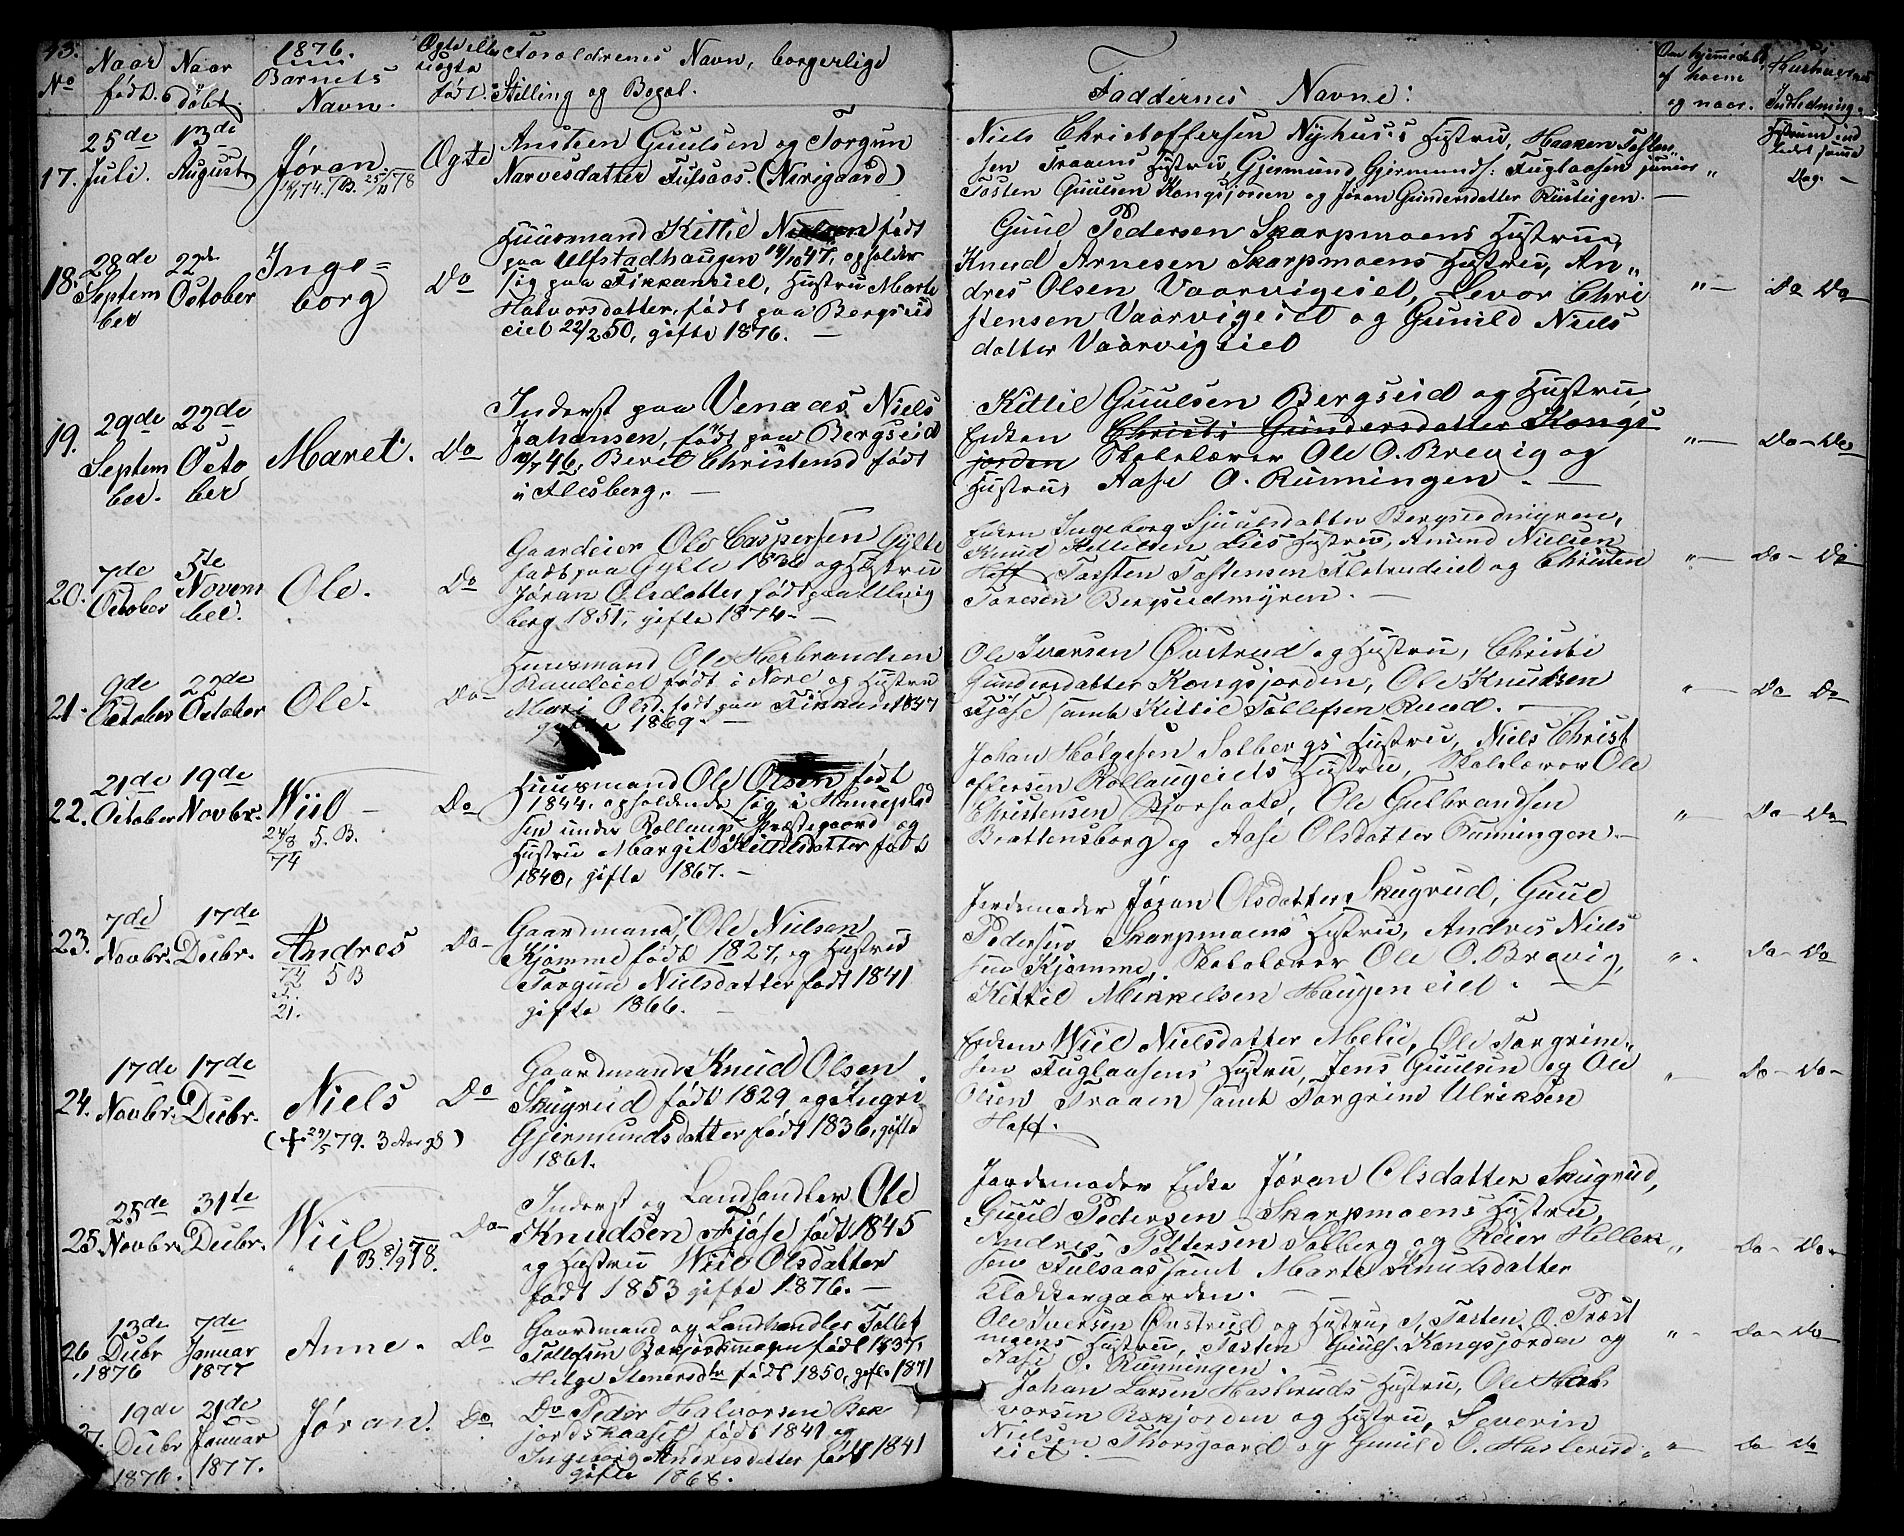 43.
No
Naar
født.
Naar
døbt.
1876.
Barnets
Navn.
Ægte eller
uægte
født.
Forældrenes Navn, borgerlige
Stilling og Bopæl.
Faddernes Navne.
Om hjemmedøbt,
af hvem
og naar.
Indledning.
17.
25de
Juli.
13de
August
Jøran
Ægte
Ansteen Guulsen og Torgun
Narvesdatter Fulsaas. (Nerigaard)
Niels Christoffersen Nyhus's Hustru, Haaken Tosten-
sen Traaens Hustru, Gjermund Gjermunds: Fuglaasen junior
Tosten Guulsen Kongsjorden og Jøran Gundersdatter Rusteigen. —
Hustruen ind
ledet samme
Dag. —
18.
28de
Septem
ber
22de
October
Inge=
borg
Do
Huusmand Kittil Nielsen født
paa Ulfstadhaugen 14/10 47, opholder
sig paa Fikkaneiet, Hustru Marte
Halvorsdatter, født paa Bergsud
eiet 22/2 50, gifte 1876. —
Guul Pedersen Skarpmoens Hustrue,
Knud Arnesen Skarpmoens Hustru, An„
dres Olsen Vaarvigeiet, Levor Chri
stensen Vaarvigeiet og Gunild Niels
datter Vaarvigeiet
Do Do
19.
29de
Septem
ber.
22de
Octo
ber
Maret.
Do
Inderst paa Venaas Niels
Johansen, født paa Bergseid
46, Beret Christensd født
i Flesberg. —
Kittil Guulsen Bergseid og Hustru,
Enken Christi Gundersdatter Kongs
jorden Skolelærer Ole O. Brevig og
Hustru, Aase O. Runningen. —
Do - Do
20.
7de
October
5te
Novem
ber.
Ole.
Do
Gaardeier Ole Caspersen Gylte
født paa Gylte 1830 og Hustru
Jøran Olsdatter født paa
berg 1851, gifte 1874. —
Enken Ingeborg Sjuulsdatter Bergsudmyren,
Knud Kittilsen Lies Hustru, Amund Nielsen
Hoff, Torsten Tostensen og Christen
Toresen Bergsudmyren. —
Do - Do
21.
9de
October
22de
October
Ole.
Do
Huusmand Ole Herbrandsen
Raudeiet født i Nore og Hustru
Mari Olsd. født paa 1847
gifte 1869. —
Ole Iversen Øvstrud og Hustru, Christi
Gundersdatter Kongsjorden, Ole Knudsen
Fjøse samt Kittil Tollefsen Ruud. —
Do Do
22.
21de
October
19de
Novbr.
Wiib —
24/8 5. B.
74
Do
Huusmand Ole Olsen født
1844. opholdende sig i Huuseplad
sen under Rollaugs Præstegaard og
Hustru Margit Kittilsdatter født
1840, gifte 1867. —
Johan Holgesen Solbergs Hustru, Niels Christ
offersen Rollaugeiets Hustru, Skolelærer Ole
Christensen Bjørsaate, Ole Gulbrandsen
Brattensborg og Aase Olsdatter Runningen. —
Do - Do
23.
7de
Novbr.
17de
Debr.
Andres
74 5 B
21.
Do -
Gaardmand Ole Nielsen
Kjømme født 1827, og Hustru
Torgun Nielsdatter født 1841
gifte 1866. —
Jordemoder Jøran Olsdatter Skugrud, Guul
Pedersen Skarpmoens Hustru, Andres Niels
sen Kjømme, Skolelærer Ole O. Brevig,
Kittil Mikkelsen Haugeneiet. —
Do - Do
24.
17de
Novbr.
17de
Debr.
Niels
(+ 29/5 79. 3 Aar gl)
Do
Gaardmand Knud Olsen
Skugrud født 1829 og Ingri
Gjermundsdatter født 1836, gifte
1861.
Enken Wiil Nielsdatter Melie, Ole Torgrim-
sen Fuglaasens Hustru, Jens Guulsen og Ole
Olsen Traaen samt Torgrim Ulriksen
Hoff.
Do - Do -
25.
25de
Novbr.
31te
Debr.
Wiil
1 B. 8/9 78.
Do -
Inderst og Landhandler Ole
Knudsen Fjøse født 1845
og Hustru Wiib Olsdatter
født 1853 gifte 1876. —
Jordemoder Enke Jøran Olsdatter Skugrud,
Guul Pedersen Skarpmoens Hustru,
Andres Pettersen Solberg og Reier Hellek
sen Fulsaas samt Marte Knudsdatter
Klokkergaarden. —
Do - Do -
26
13de
Debr
1876
7de
Januar
1877
Anne.
Do
Gaardmand og Landhandler Tollef
Tollefsen Bækjordsmoen født 1837,
Helge Stenersdtr født 1850, gifte 1871
Ole Iversen Øvstrud og Hustru, Tosten O. Præst
moens Hustru, Tosten Guuls. Kongsjorden og
Aase O. Runningen. —
Do - Do -
27.
19de
Debr
1876.
21de
Januar
1877.
Jøran.
Do
Do Peder Halvorsen Bæk
jordskaaset født 1841 og
Ingeborg Andresdatter født 1841
gifte 1868.
Johan Larsen Hasleruds Hustru, Ole Hal
vorsen Bækjorden og Hustru, Severin
Nielsen Thorsgaard og Gunild O. Haslerud-
eiet. —
Do Do